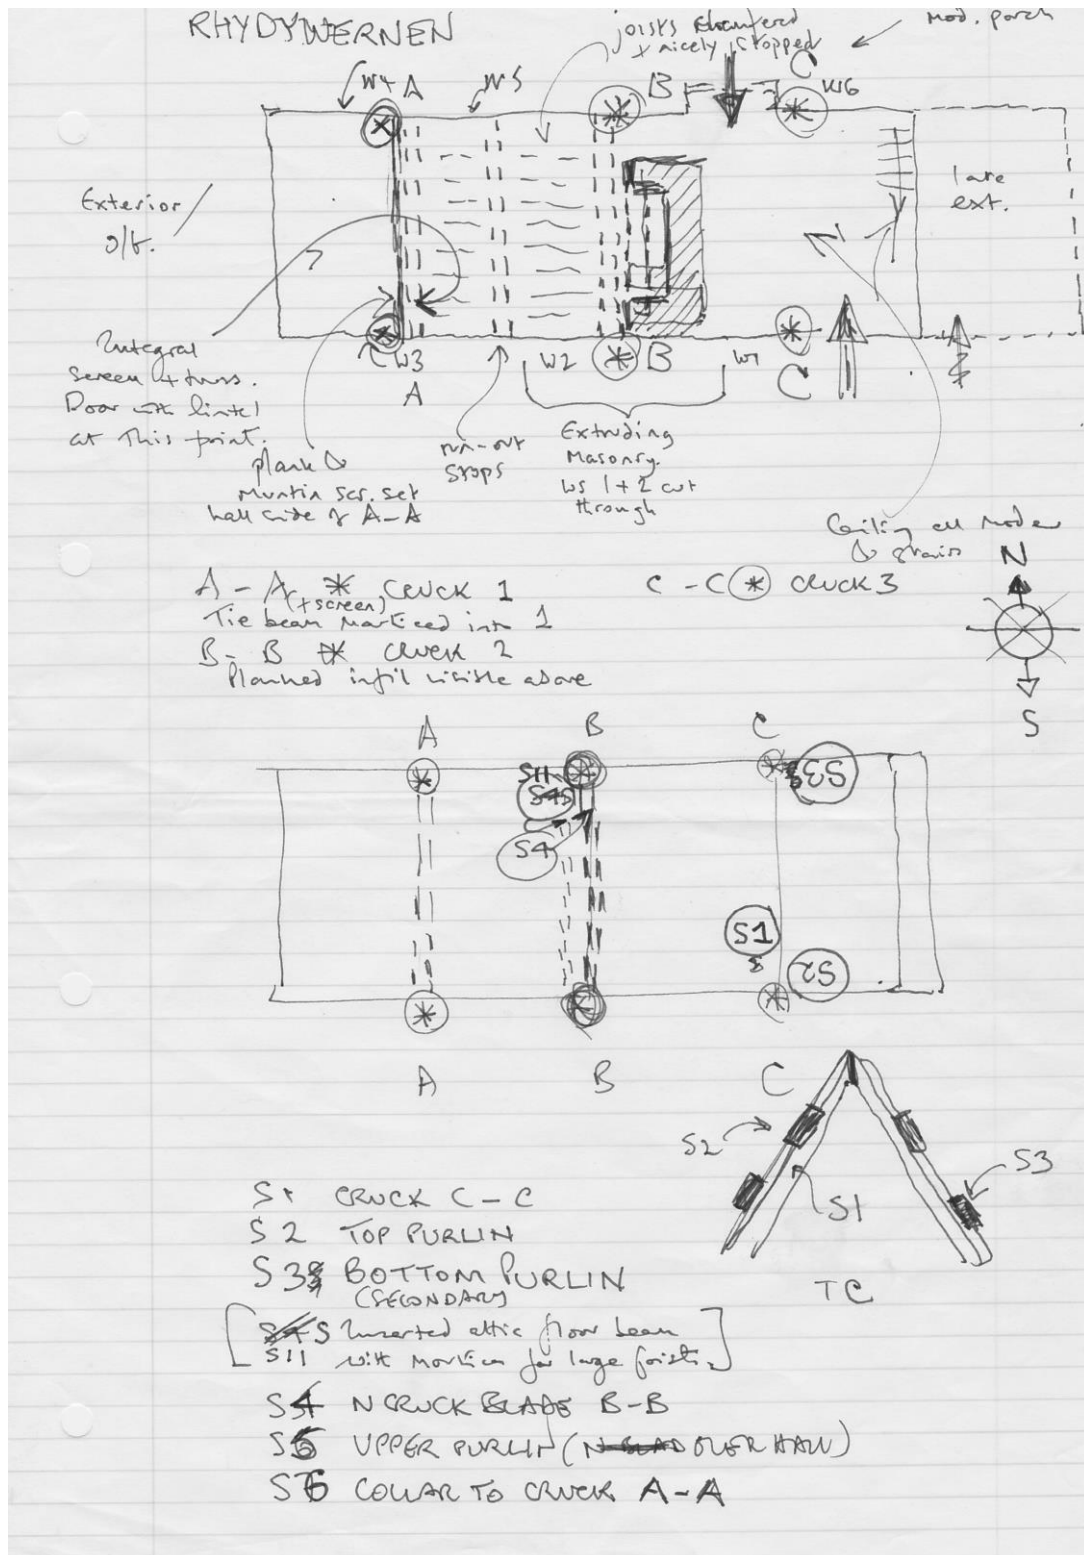 RHYDYWERNEN
joists chamfered
+ nicely stopped
Mod. porch
W4 A W5 B C W6
Exterior
o/t.
late
ext.
W3 W2 B W1 C
A
Integral
Screen + truss.
Door with lintel
at this point.
plank &
Muntin scr. set
hall side of A-A
run-out
stops
Extruding
Masonry.
Ws 1 + 2 cut
through
Ceiling all modern
& stairs
N
S
A - A * CRUCK 1
(+ screen)
Tie beam morticed into 1
B - B * CRUCK 2
Planned infil visible above
C - C * CRUCK 3
A B C
S11
S4
S3
S1
S2
A B C
S2
S3
S1
TC
S1 CRUCK C - C
S2 TOP PURLIN
S3 BOTTOM PURLIN
(SECONDARY)
[S11 Inserted attic floor beam
with mortices for large joists.]
S4 N CRUCK BLADE B-B
S5 UPPER PURLIN (OVER HALL)
S6 COLLAR TO CRUCK A-A